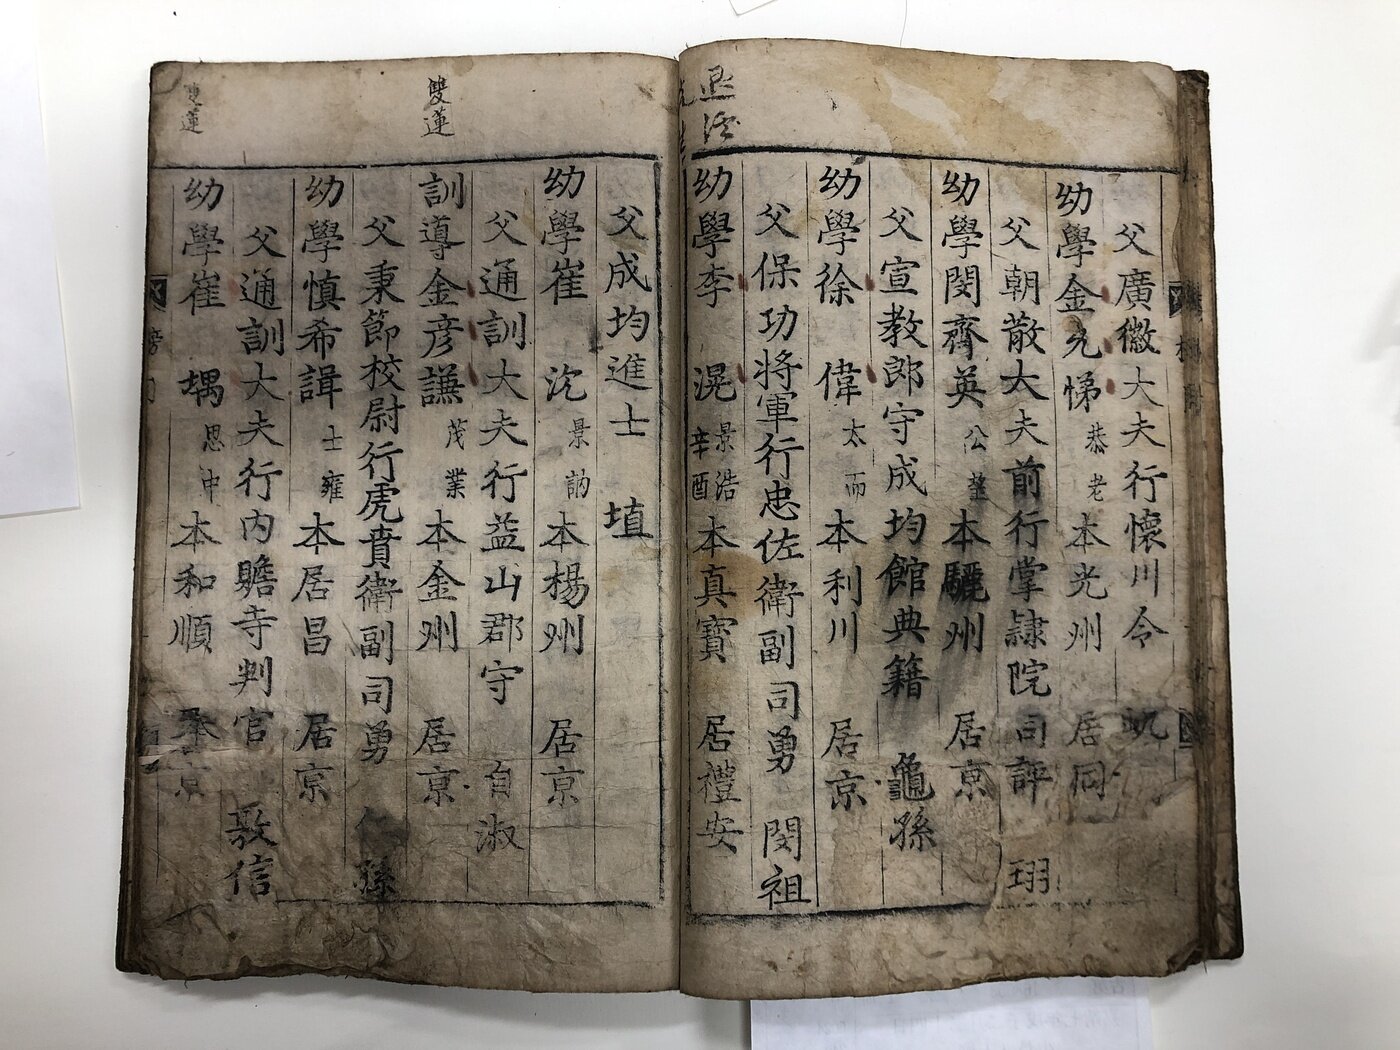 父廣徽大夫行懷川令
幼學金允悌 恭老 本光州 居同
父朝散大夫前行掌隷院司評 珝
幼學閔齊英 公瑩 本驪州 居京
父宣教郎守成均館典籍 龜孫
幼學徐 偉 太而 本利川 居京
父保功將軍行忠佐衛副司勇 閔祖
幼學李 滉 景浩 辛酉 本真寶 居禮安
退溪
父成均進士 埴
幼學崔 沈 景訥 本楊州 居京
父通訓大夫行益山郡守 自淑
雙蓮
訓導金彦謙 茂業 本金州 居京
父秉節校尉行虎賁衛副司勇 孫
幼學慎希諿 士雍 本居昌 居京
父通訓大夫行内贍寺判官 敦信
雙蓮
幼學崔 堣 思中 本和順 京